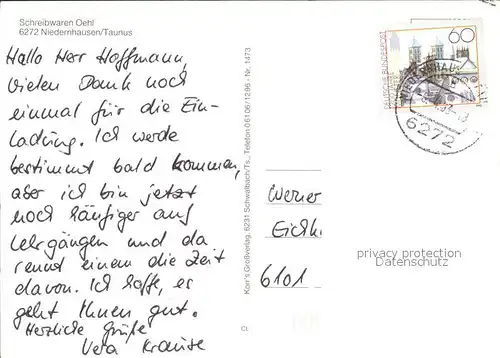 Schreibwaren Oehl
6272 Niedernhausen/Taunus
Hallo Herr Hoffmann,
vielen Dank noch
einmal für die Ein-
ladung. Ich werde
bestimmt bald kommen,
aber ich bin jetzt
noch häufiger auf
Lehrgängen und da
rennt einem die Zeit
davon. Ich hoffe, es
geht Ihnen gut.
Herzliche Grüße
Vera Krause
CL
Korr's Großverlag, 6231 Schwalbach/Ts., Telefon 06106/1296 - Nr. 1473
60
DEUTSCHE BUNDESPOST
6272
Werner
Eichk.
6101
privacy protection
Datenschutz